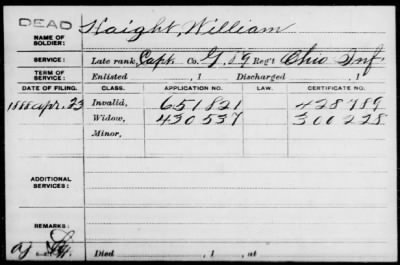 DEAD
Haight, William
NAME OF SOLDIER:
SERVICE: Late rank, Capt. Co. G, 89 Reg't Ohio Inf.
TERM OF SERVICE: Enlisted , 1 Discharged , 1
DATE OF FILING. CLASS. APPLICATION NO. LAW. CERTIFICATE NO.
1888 Apr. 23 Invalid, 651821 428789
Widow, 430537 300228
Minor,
ADDITIONAL SERVICES:
REMARKS:
Died , 1 , at